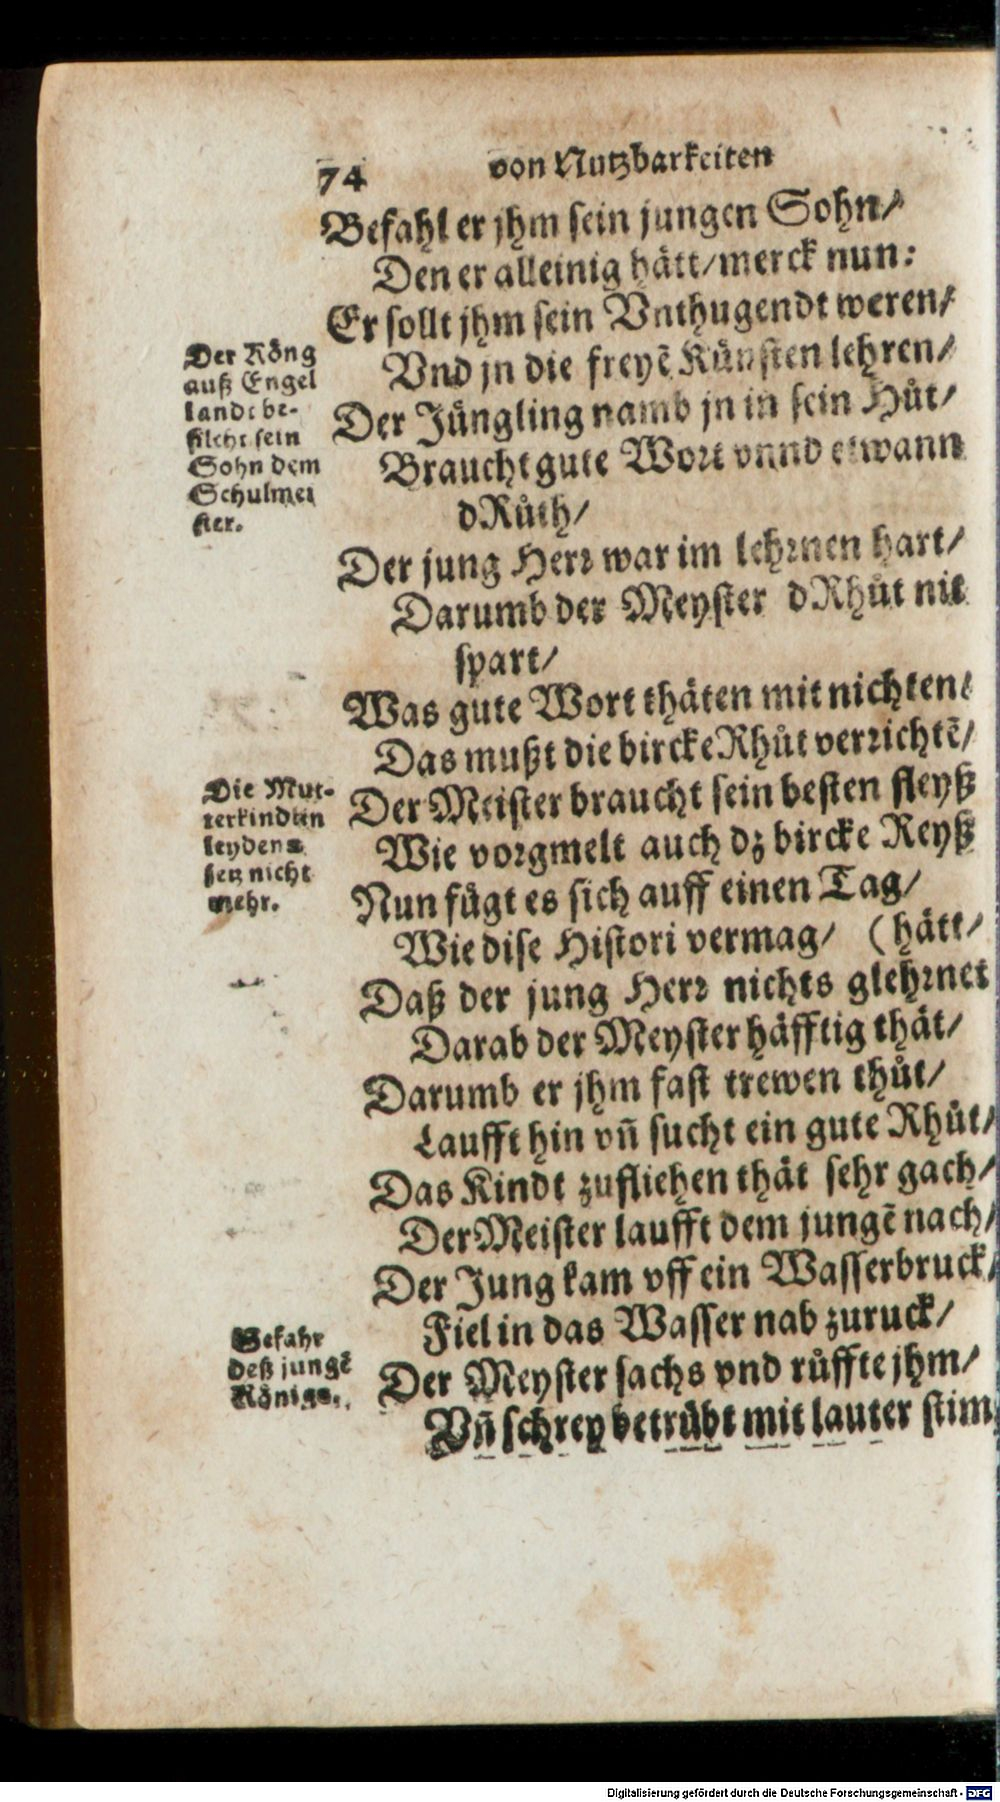 74 von Nutzbarkeiten
Befahl er jhm sein jungen Sohn/
Den er alleinig hätt/ merck nun:
Er sollt jhm sein Vnthugendt weren/
Vnd jn die freyẽ Künsten lehren/
Der Jüngling namb jn in sein Hůt/
Braucht gute Wort vnnd etwann
dRůth/
Der jung Herr war im lehrnen hart/
Darumb der Meyster dRhůt nit
spart/
Was gute Wort thäten mit nichten/
Das mußt die bircke Rhůt verrichtẽ/
Der Meister braucht sein besten fleyß
Wie vorgmelt auch dz bircke Reyß
Nun fügt es sich auff einen Tag/
Wie dise Histori vermag/ (hätt/
Daß der jung Herr nichts glehrnet
Darab der Meyster häfftig thät/
Darumb er jhm fast trewen thůt/
Laufft hin vñ sucht ein gute Rhůt/
Das Kindt zufliehen thät sehr gach/
Der Meister laufft dem jungẽ nach/
Der Jung kam vff ein Wasserbruck/
Fiel in das Wasser nab zuruck/
Der Meyster sachs vnd růffte jhm/
Vñ schrey betrübt mit lauter stim/
Der Köng
auß Engel
landt be-
filcht sein
Sohn dem
Schulmei
ster.
Die Mut-
terkindlin
leyden
nicht
mehr.
Gefahr
deß jungẽ
Königs.
Digitalisierung gefördert durch die Deutsche Forschungsgemeinschaft - DFG